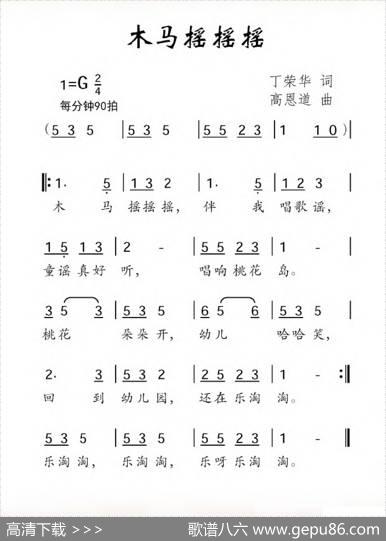 木马摇摇摇
1=G 2/4
丁荣华 词
每分钟90拍
高恩道 曲
(5 3 5 | 5 3 5 | 5 5 2 3 | 1 1 0) |
‖: 1. 5 | 1 3 2 | 1. 5 | 2 2 3 |
木 马 摇摇摇, 伴 我 唱歌谣,
1 5 1 3 | 2 - | 5 5 2 3 | 1 - |
童谣真好 听, 唱响桃花 岛。
3 5 3 | 5 3 5 | 6 5 6 | 5 3 5 |
桃花 朵朵开, 幼儿 哈哈笑,
2. 3 | 5 5 3 | 5 5 2 3 | 1 - :‖
回 到 幼儿园, 还在乐淘 淘。
5 3 5 | 5 3 5 | 5 5 2 3 | 1 - ‖
乐淘淘, 乐淘淘, 乐呀乐淘 淘。
高清下载 >>> 歌谱八六 www.gepu86.com